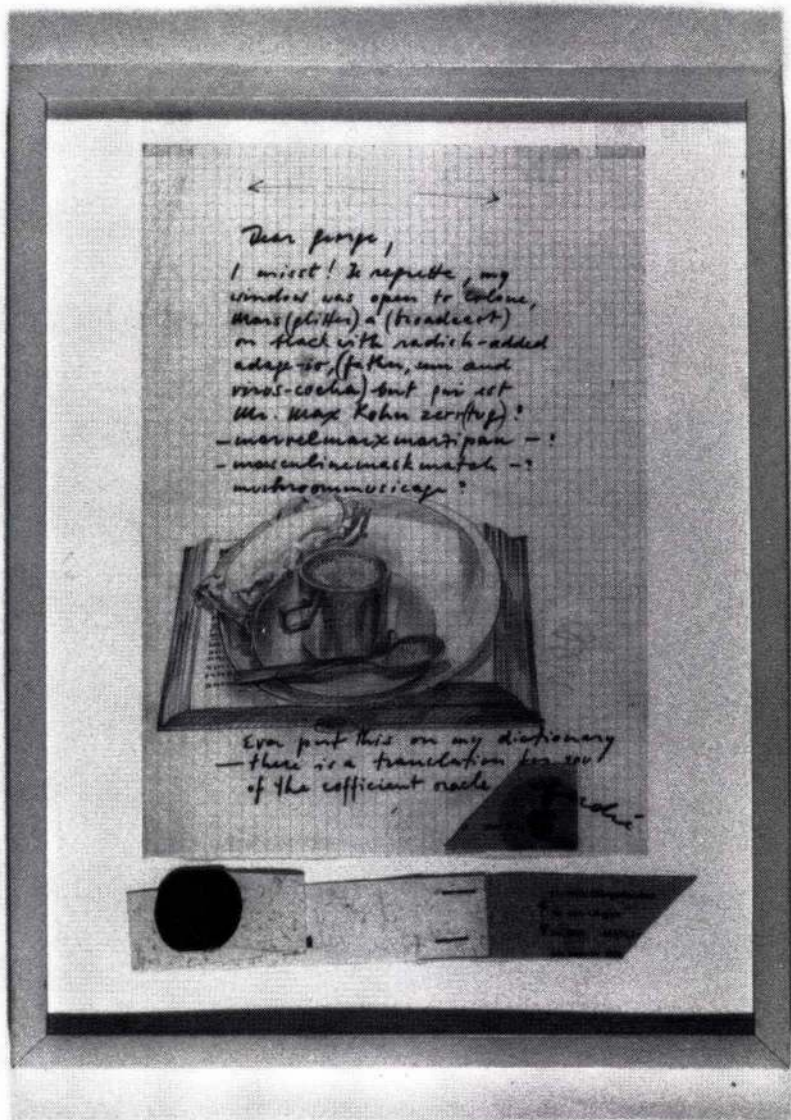 Dear George,
I misst! Je regrette, my
window was open to colone,
Mars (glitter) a (broadcast)
on black with radish-added
adage-io, (father, sun and
viros-cocha) but qui est
Mr. Max Kohn zero(tug)?
– marvelmarxmarzipan – ?
– masculinemaskmatch – ?
mushroommusicage ?
Ever put this on my dictionary
– there is a translation for you
of the cofficient oracle